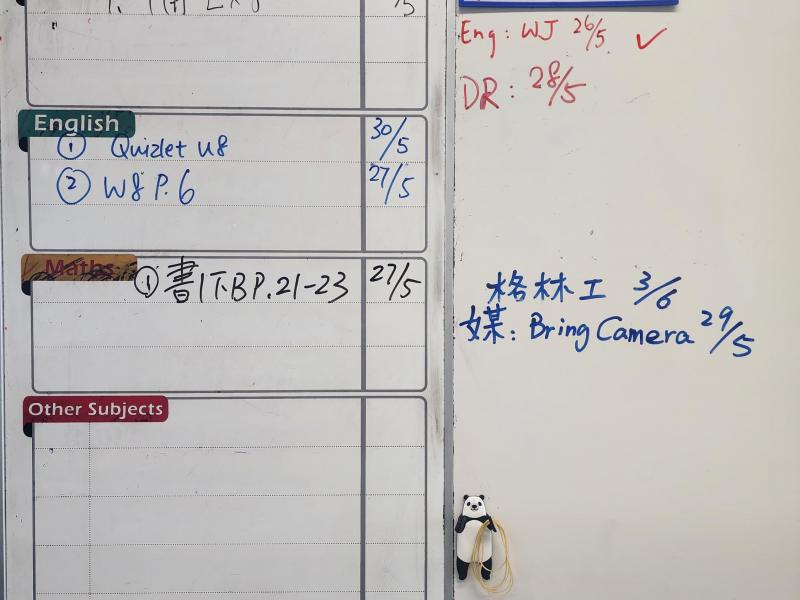 English
① Quizlet U8 30/5
② W8 P.6 27/5
Maths
① 書1下B P.21-23 27/5
Other Subjects
Eng: WJ 26/5 ✓
DR: 28/5
格林工 3/6
媒: Bring Camera 29/5